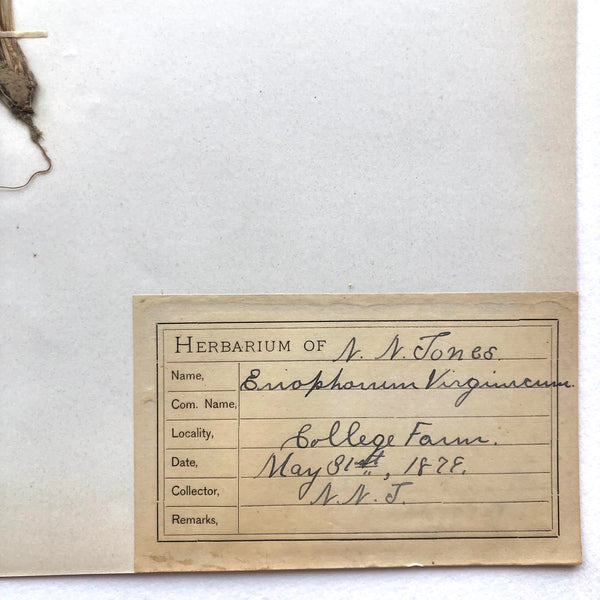 HERBARIUM OF N. N. Jones.
Name, Eriophorum Virginicum.
Com. Name,
Locality, College Farm.
Date, May 31st, 1878.
Collector, N. N. J.
Remarks,